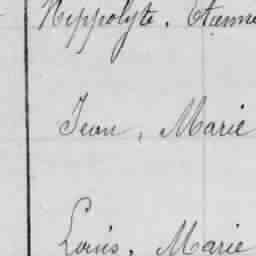 Hippolyte. Etienne
Jean, Marie
Louis, Marie